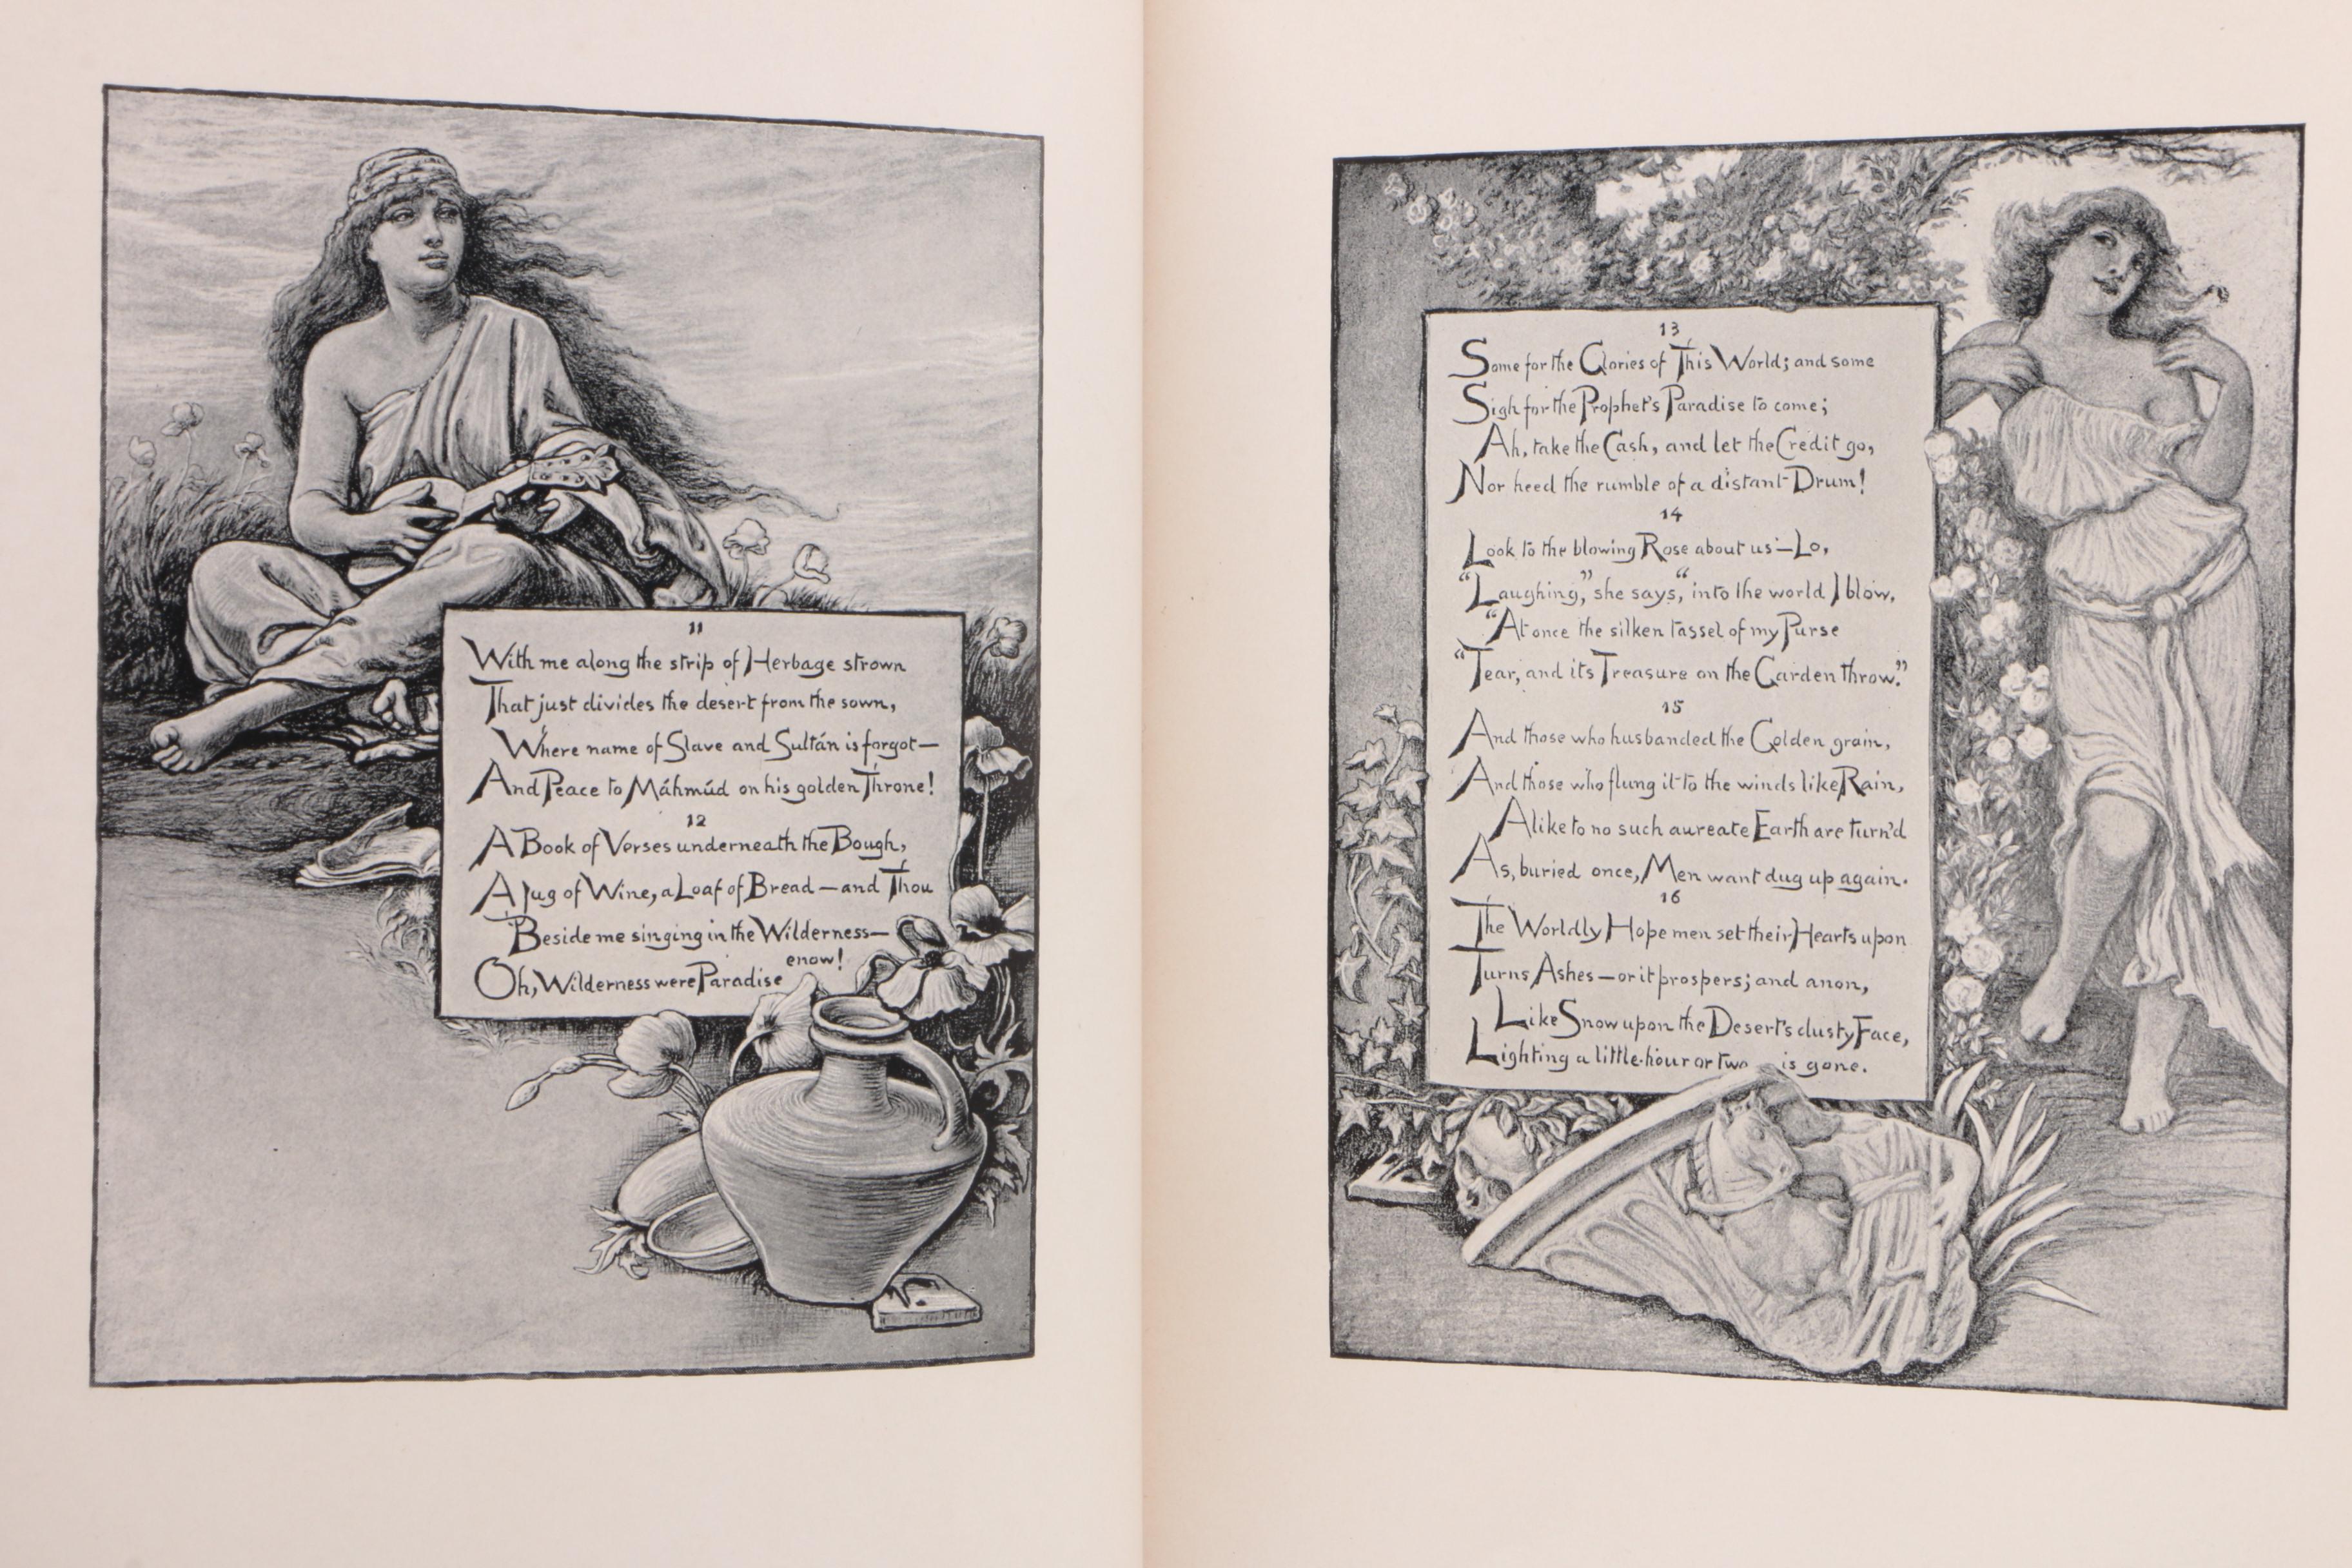 11
With me along the strip of Herbage strown
That just divides the desert from the sown,
Where name of Slave and Sultán is forgot—
And Peace to Máhmúd on his golden Throne!
12
A Book of Verses underneath the Bough,
A Jug of Wine, a Loaf of Bread—and Thou
Beside me singing in the Wilderness—
Oh, Wilderness were Paradise enow!
13
Some for the Glories of This World; and some
Sigh for the Prophet's Paradise to come;
Ah, take the Cash, and let the Credit go,
Nor heed the rumble of a distant Drum!
14
Look to the blowing Rose about us—Lo,
"Laughing," she says, "into the world I blow,
"At once the silken tassel of my Purse
"Tear, and its Treasure on the Garden throw."
15
And those who husbanded the Golden grain,
And those who flung it to the winds like Rain,
Alike to no such aureate Earth are turn'd
As, buried once, Men want dug up again.
16
The Worldly Hope men set their Hearts upon
Turns Ashes—or it prospers; and anon,
Like Snow upon the Desert's dusty Face,
Lighting a little hour or two is gone.